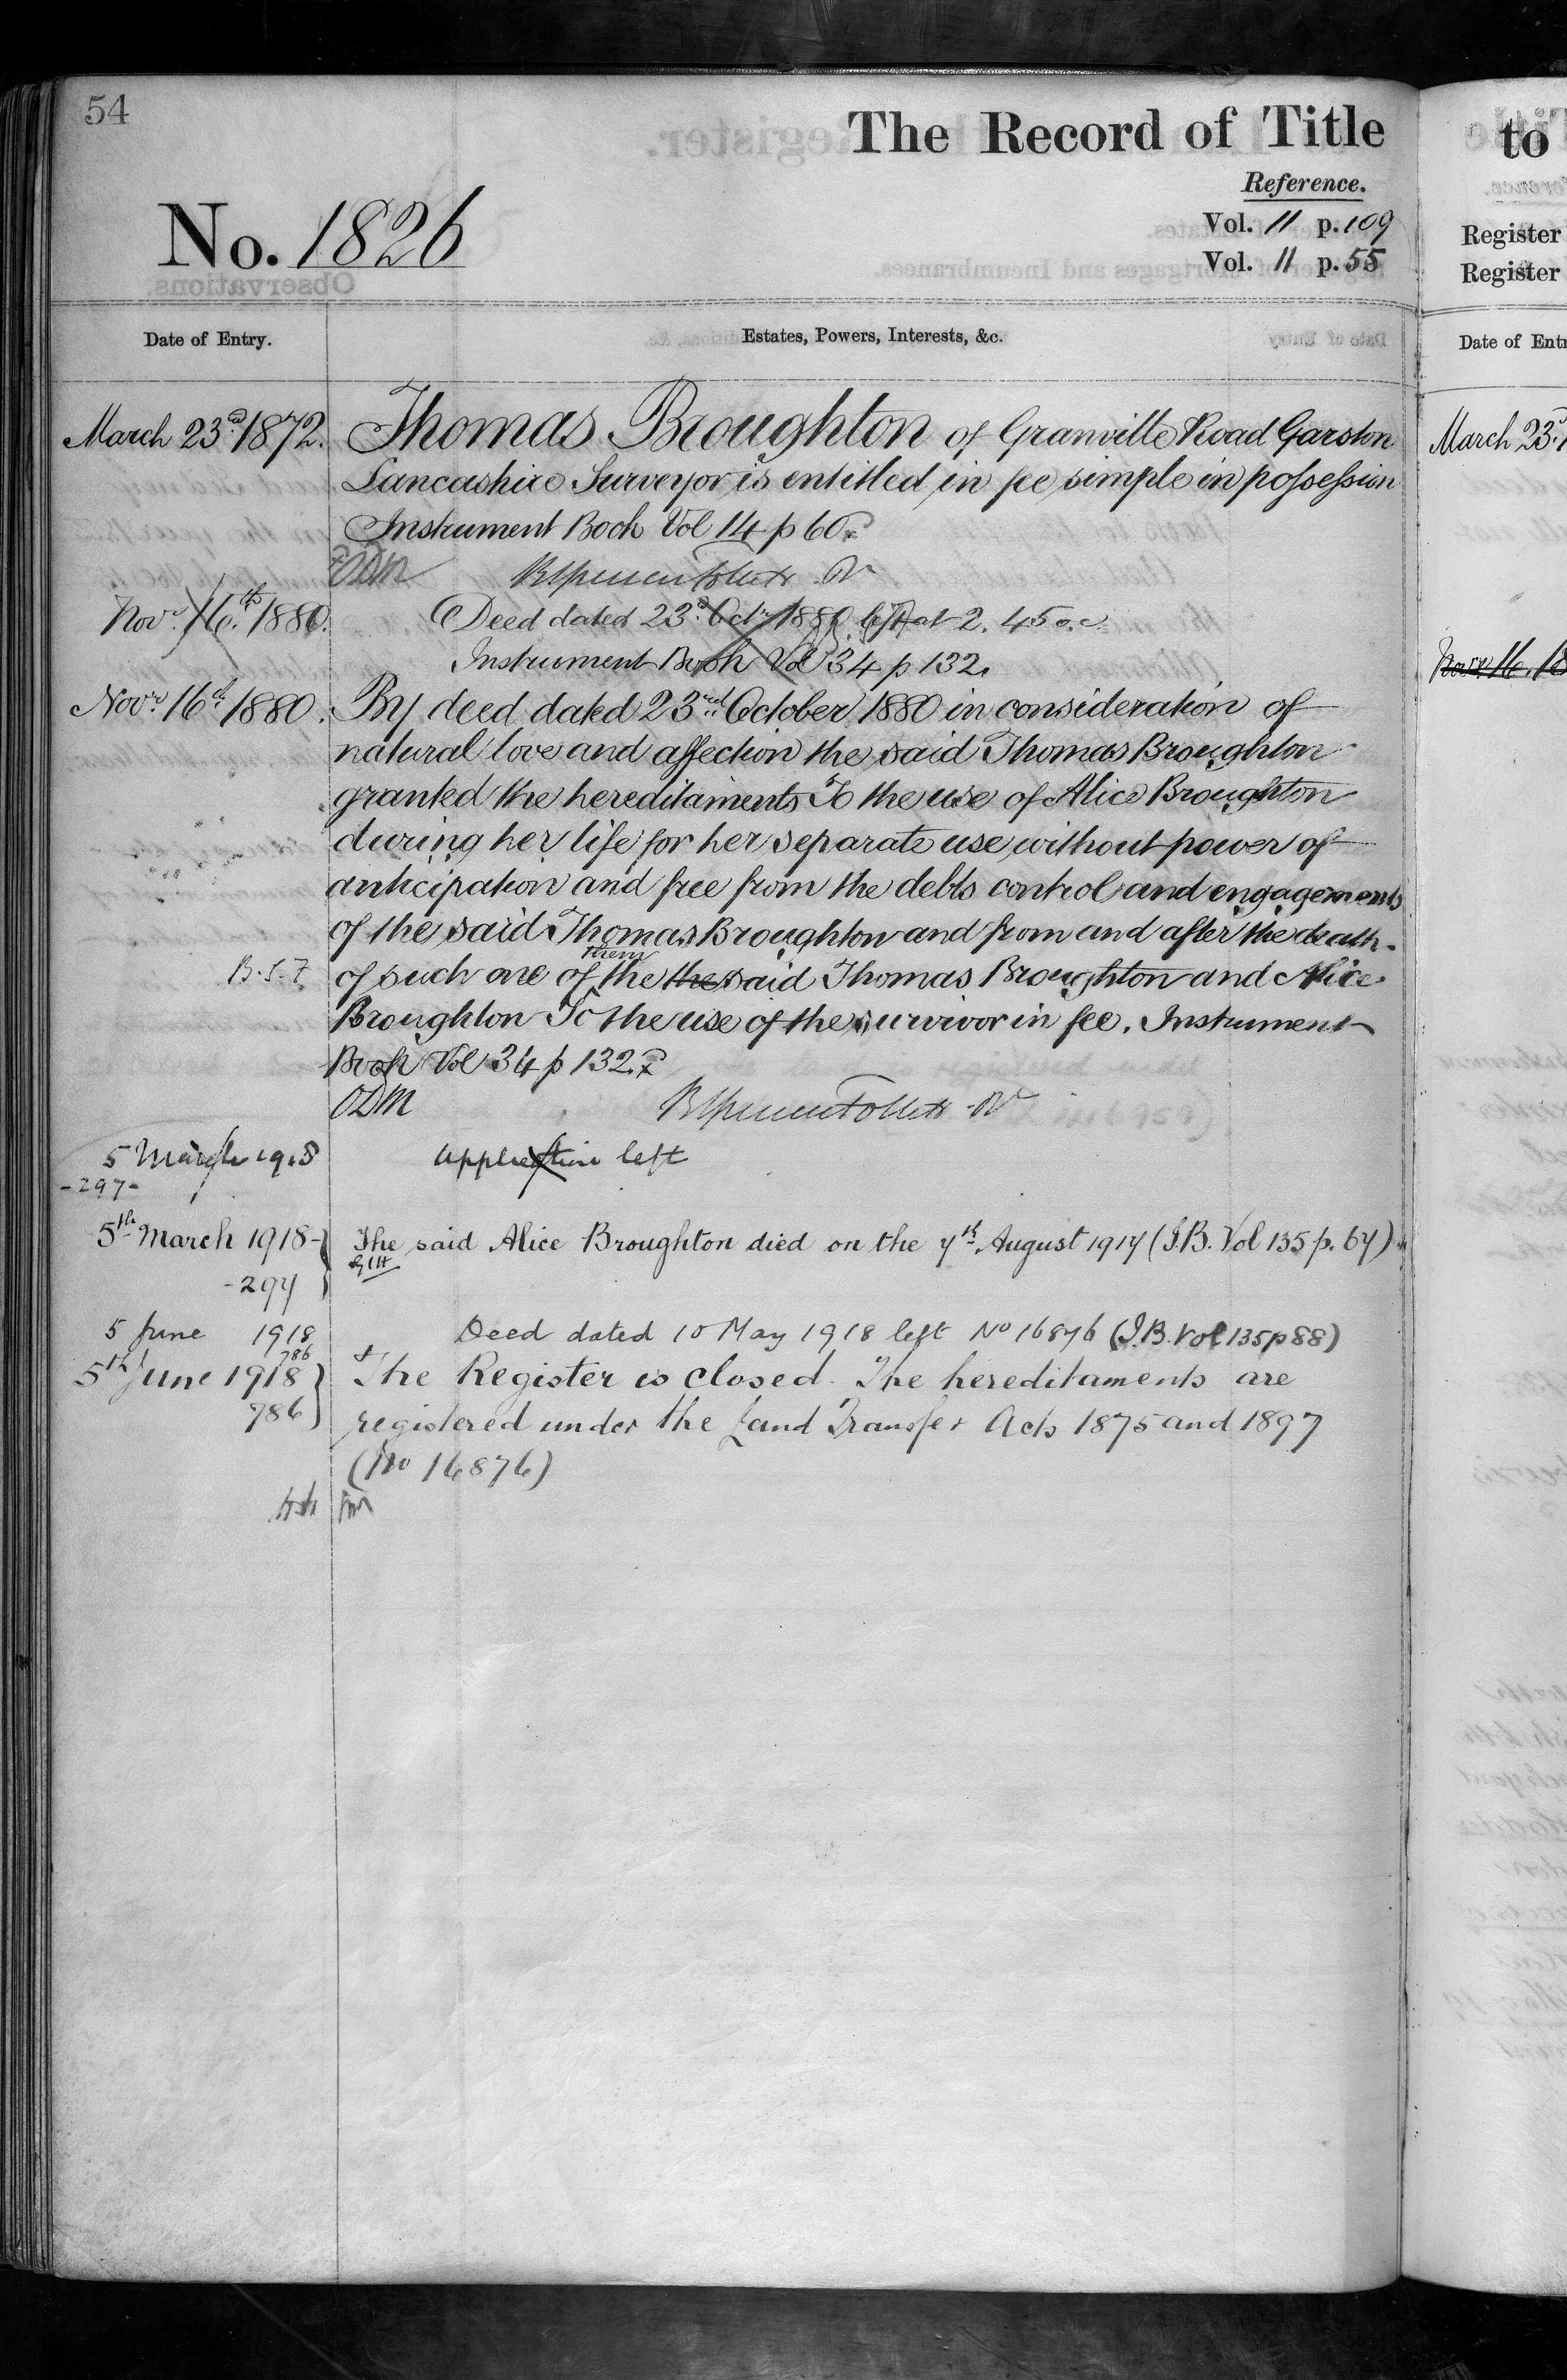 54
The Record of Title
Reference.
No. 1826
Vol. 11 p. 109
Vol. 11 p. 55
Date of Entry.
Estates, Powers, Interests, &c.
March 23rd 1872. Thomas Broughton of Granville Road Garston
Lancashire Surveyor is entitled in fee simple in possession
Instrument Book Vol 14 p 60.
ODM
Novr. 16th 1880. Deed dated 23rd Octr 1880 left at 2.45 o.c.
Instrument Book Vol 34 p 132.
Novr. 16th 1880. By deed dated 23rd October 1880 in consideration of
natural love and affection the said Thomas Broughton
granted the hereditaments To the use of Alice Broughton
during her life for her separate use without power of
anticipation and free from the debts control and engagements
of the said Thomas Broughton and from and after the death
B.S.F. of such one of them the the said Thomas Broughton and Alice
Broughton To the use of the survivor in fee. Instrument
Book Vol 34 p 132.
ODM
5 March 1918 Application left
-297-
5th March 1918- The said Alice Broughton died on the 7th August 1917 (I.B. Vol 135 p. 67)
-297
5 June 1918 Deed dated 10 May 1918 left No 16876 (I.B. Vol 135 p 88)
786
5th June 1918 The Register is closed. The hereditaments are
786 registered under the Land Transfer Acts 1875 and 1897
(No 16876)
to
Register
Register
Date of Entr
March 23rd 1
Novr. 16. 18